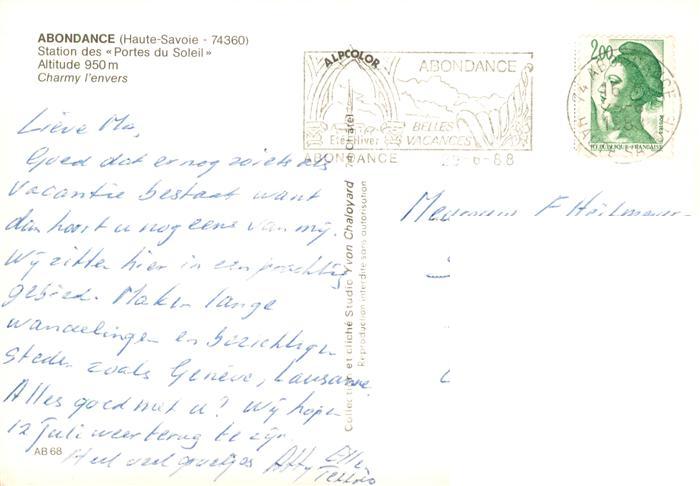 ABONDANCE (Haute-Savoie - 74360)
Station des «Portes du Soleil»
Altitude 950 m
Charmy l'envers
ALPCOLOR
ABONDANCE
BELLES
Eté Hiver VACANCES
ABONDANCE 29-6-88
2,00
REPUBLIQUE-FRANÇAISE
Lieve Ma,
Goed dat er nog zoiets als
vacantie bestaat want
dan hoort u nog eens van mij.
Wij zitten hier in een prachtig
gebied. Maken lange
wandelingen en bezichtigen
steden zoals Genève, Lausanne.
Alles goed met u? Wij hopen
12 juli weer terug te zijn.
Heel veel groetjes
Ellen
AB 68
Collection et cliché Studio Yvon Chaloyard 74 Châtel
Reproduction interdite sans autorisation
Mevrouw F